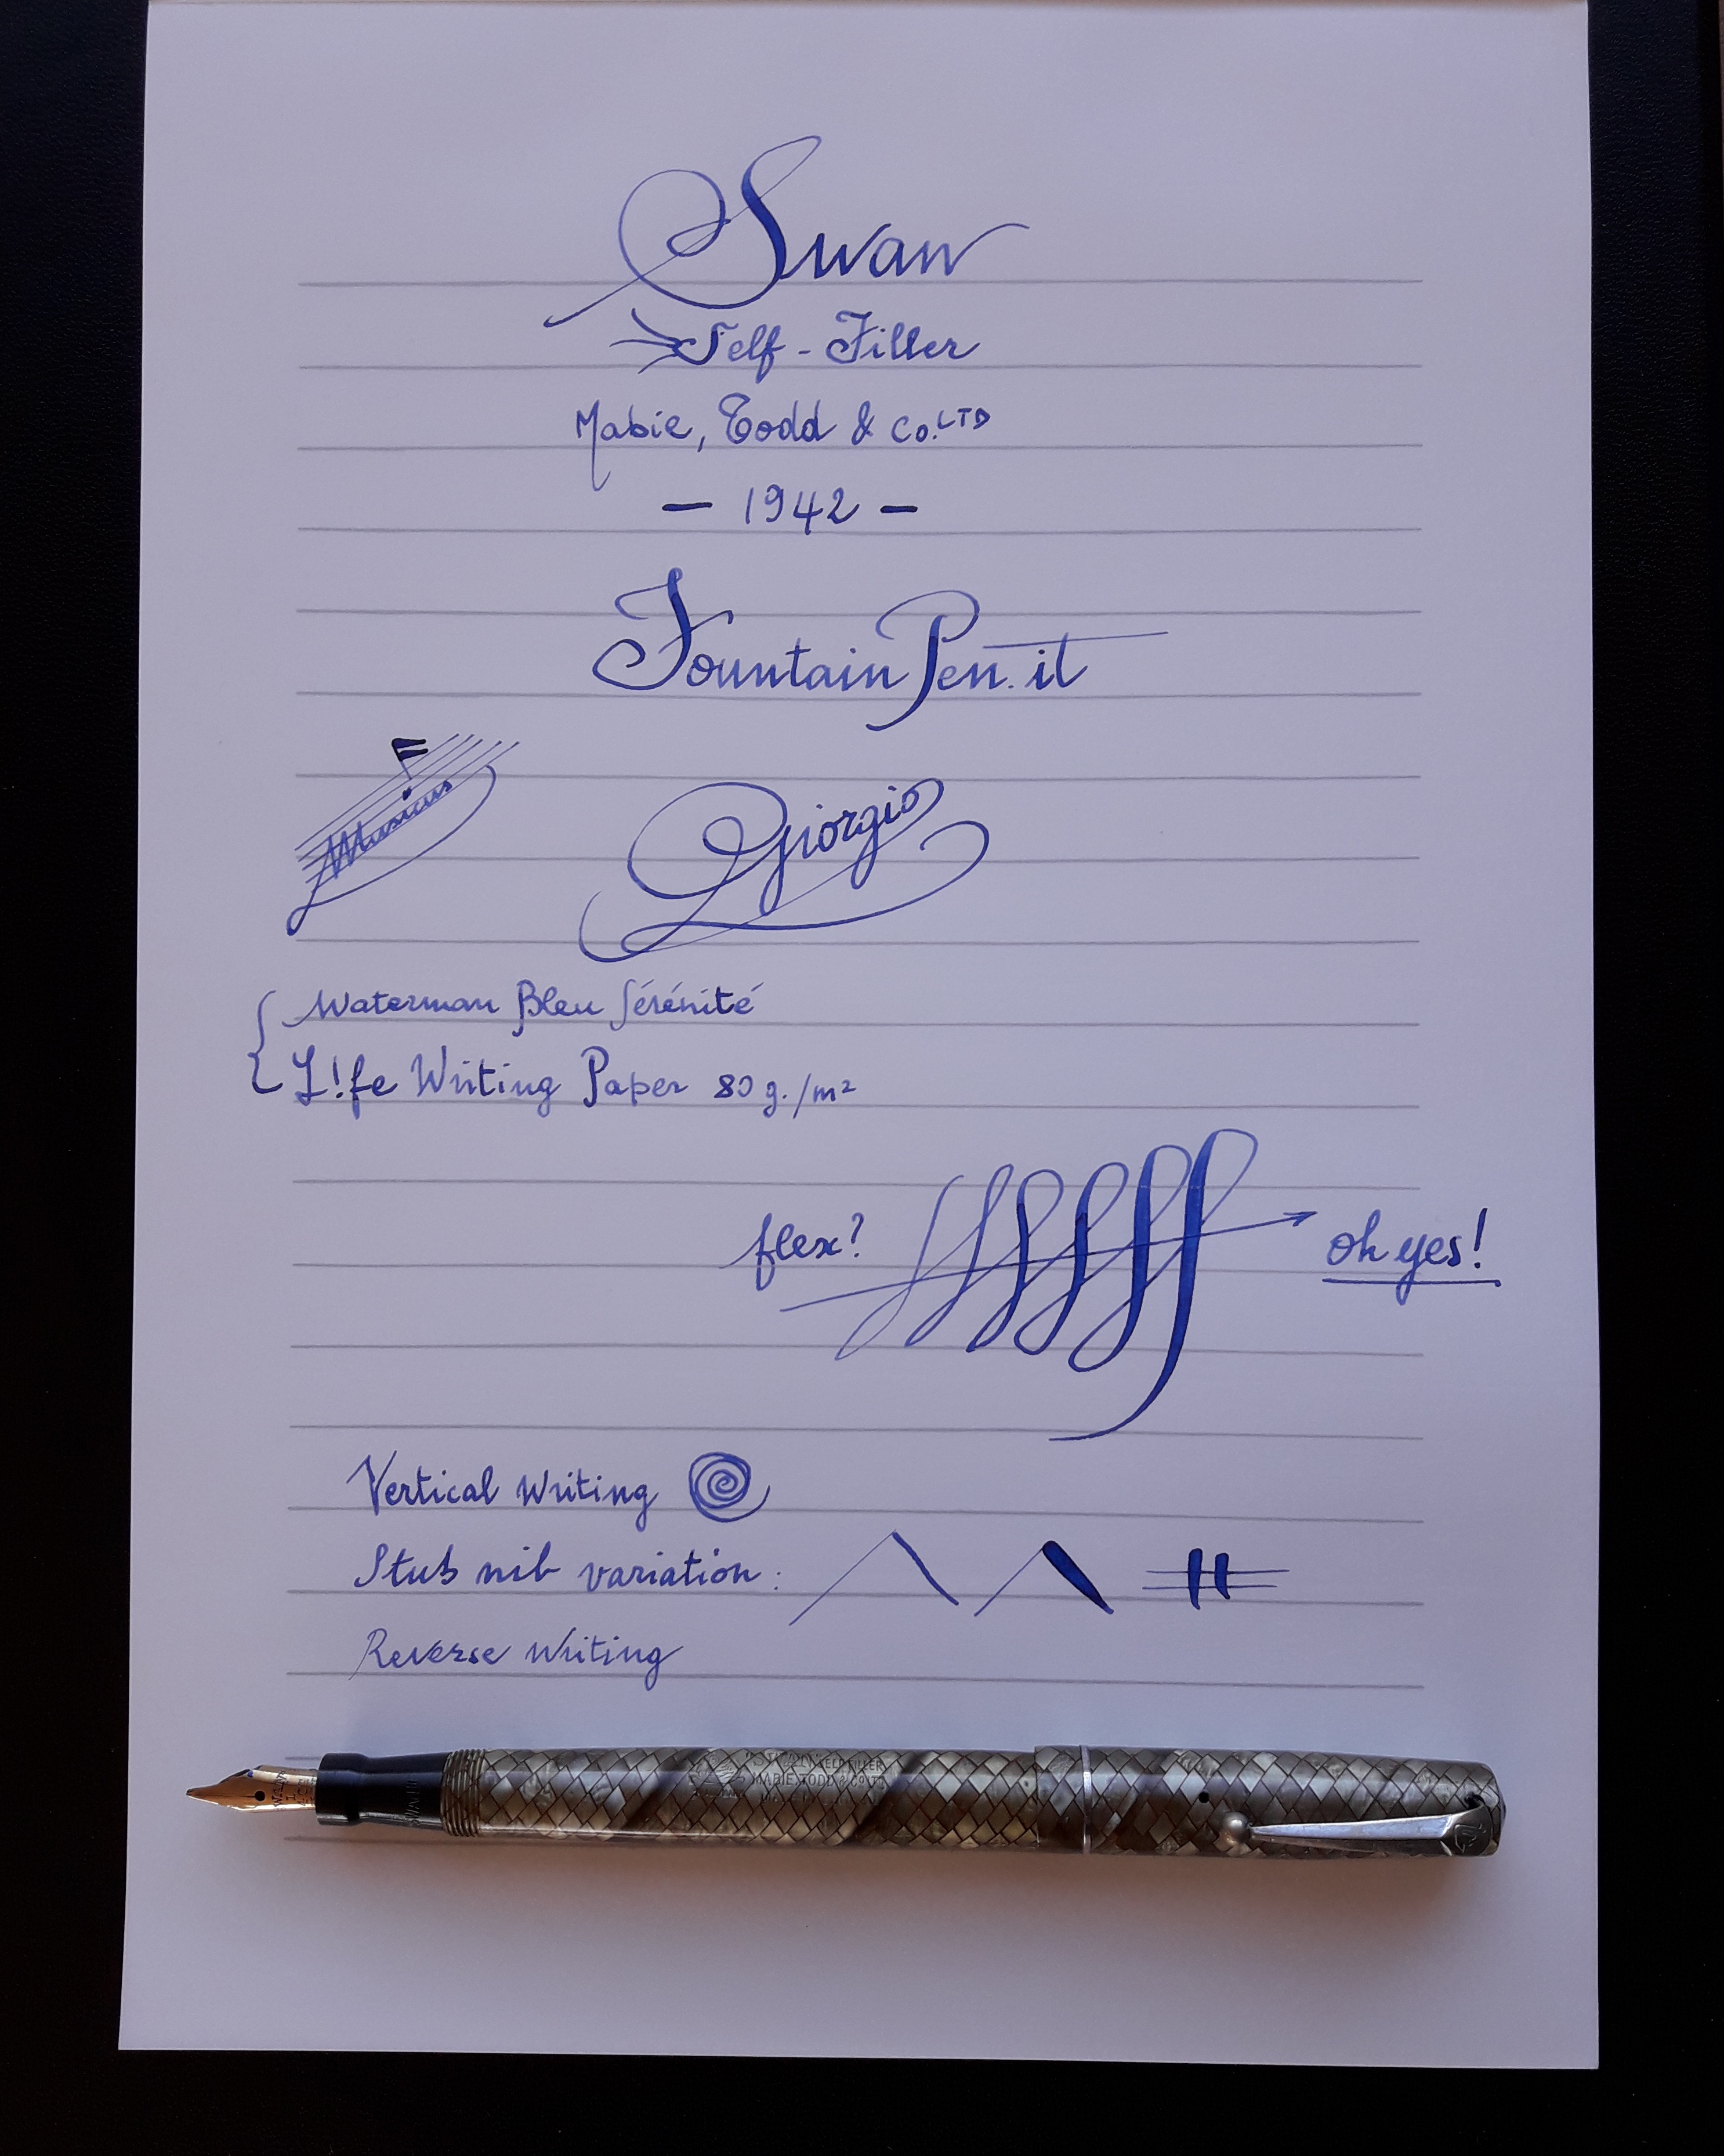 Swan
Self-Filler
Mabie, Todd & Co. LTD
— 1942 —
FountainPen.it
Musicus
Giorgio
Waterman Bleu Sérénité
L!fe Writing Paper 80 g./m²
flex?
oh yes!
Vertical Writing
Stub nib variation:
Reverse Writing
"SWAN" SELF FILLER
MABIE TODD & CO LTD